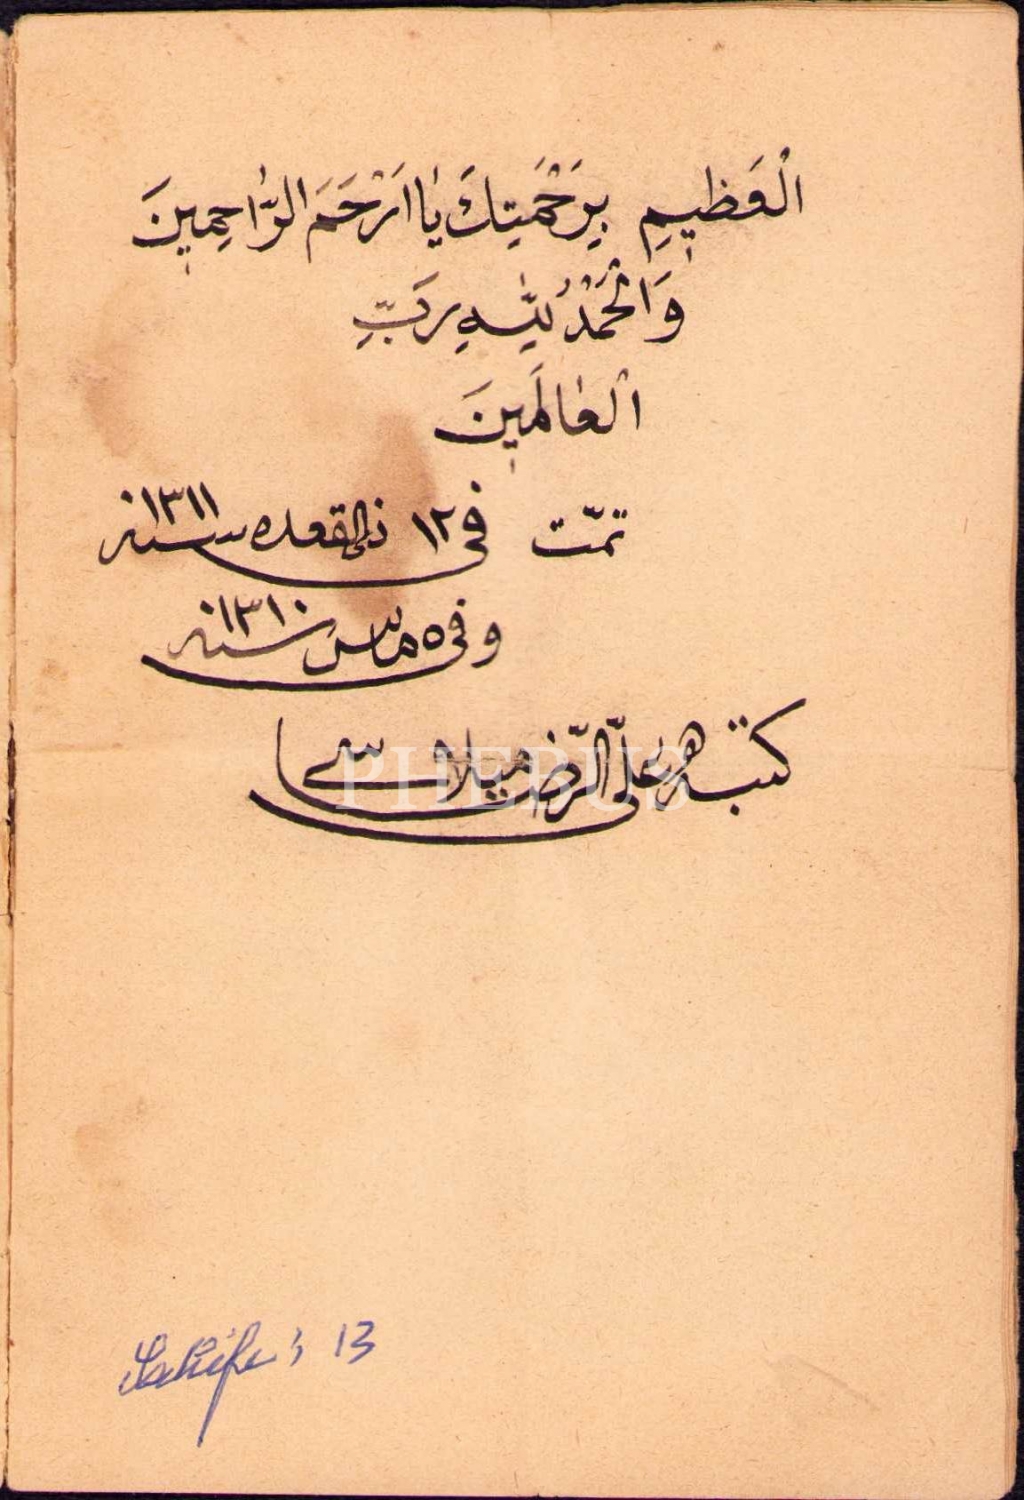 الْعَظِيمِ بِرَحْمَتِكَ يَا اَرْحَمَ الرَّاحِمِينَ
وَالْحَمْدُ لِلّٰهِ رَبِّ
الْعَالَمِينَ
تمّت فى ١٢ ذى القعده سنه ١٣١١
وفى ٥ مايس سنه ١٣١٠
كتبه على الرضا
PHEBUS
Sahife: 13